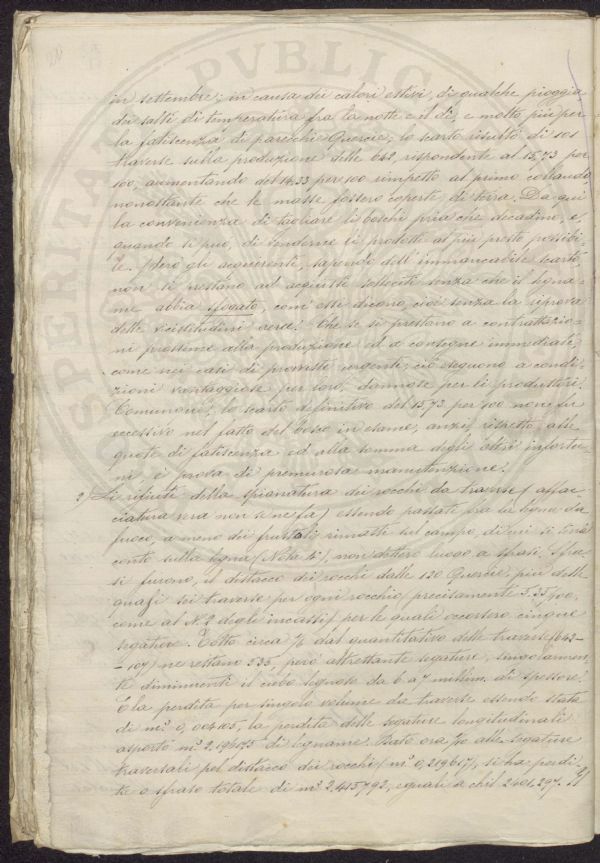 in settembre; in causa dei calori estivi, di qualche pioggia
dei salti di temperatura fra la notte e il dì, e molto più per
la fatiscenza di parecchie Quercie, lo scarto risultò di 101
traverse sulla produzione delle 642, rispondente al 15,73 per
100, aumentando del 14.33 per 100 rimpetto al primo collaudo,
nonostante che le masse fossero coperte di terra. Da qui
la convenienza di tagliare li boschi pria che decadino, e,
quando si può, di venderne li prodotti al più presto possibi-
le. Però gli acquirenti, sapendo dell'immancabile scarto,
non si prestano ad acquisti solleciti senza che il legna-
me abbia sfogato, com'essi dicono, cioè senza la riprova
delle vicissitudini aeree. Che se si prestano a contrattazio-
ni prossime alla produzione ed a consegne immediate,
come nei casi di provviste urgenti, ciò seguono a condi-
zioni vantaggiose per loro, dannose per li produttori.
Comunque, lo scarto definitivo del 15,73 per 100 non fu
eccessivo nel fatto del bosco in esame, anzi, rispetto alle
quote di fatiscenza ed alla somma degli altri infortu-
ni è prova di premurosa manutenzione.
2) Li rifiuti della spianatura dei rocchi da traverse (affac-
ciatura vera non se ne fa) essendo passati fra la legna da
fuoco, a meno dei frustoli rimasti sul campo, di cui si terrà
conto sulla legna (Nota 4ª), non dettero luogo a sfrasi. Sfra-
si furono, il distacco dei rocchi dalle 120 Quercie, più delle
quasi sei traverse per ogni rocchio (precisamente 5.35/100,
come al N.º 1 degli incassi) per le quali occorsero cinque
segature. Tolto circa 1/6 dal quantitativo delle traverse (642-
-107) ne restano 535, però altrettante segature, singolarmen-
te diminuenti il cubo legnoso da 6 a 7 millim. di spessore.
E la perdita per singolo volume da traverse essendo stata
di m.c 0,004105, la perdita delle segature longitudinali
asportò m.c 2,196175 di legname. Dato ora 1/10 alle segature
trasversali pel distacco dei rocchi (m.c 0,219617), si ha perdi-
ta o sfraso totale di m.c 2,415792, eguali a chil. 2401,297.